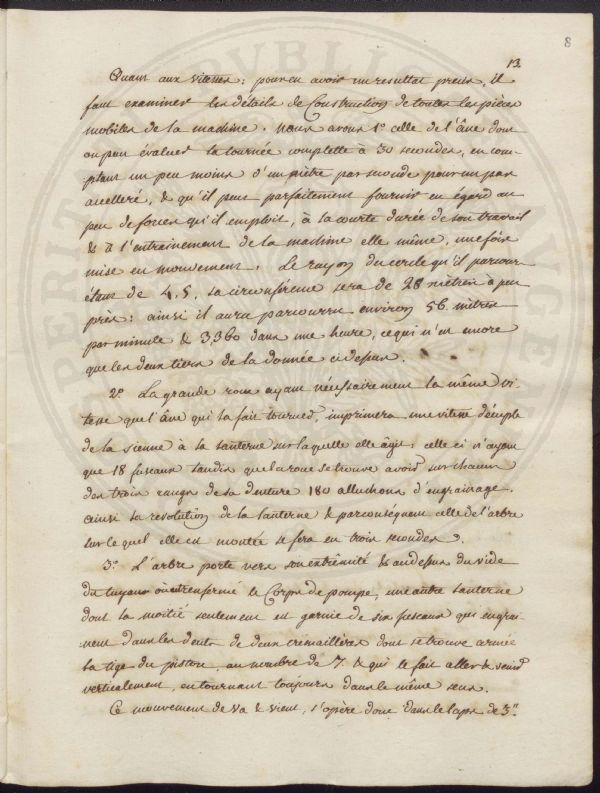 8
13.
Quant aux vitesses; pour en avoir un resultat precis, il
faut examiner les détails de Construction de toutes les pièces
mobiles de la machine. nous avons 1° celle de l'âne dont
on peu évaluer la tournée complette à 30 secondes, en com-
ptant un peu moins d'un mètre par seconde pour un pas
accelleré, & qu'il peut parfaitement fournir en égard au
peu de forces qu'il emploit, à la courte durée de son travail
& à l'entrainement de la machine elle même, une fois
mise en mouvement. Le rayon du cercle qu'il parcourt
étant de 4,5, sa circonférence sera de 28 mètres à peu
près: ainsi il aura parcouru environ 56 mètres
par minute & 3360 dans une heure, ce qui n'est encore
que les deux tiers de la donnée ci dessus.
2° La grande roue ayant nécessairement la même vi-
tesse que l'âne qui la fait tourner, imprimera une vitesse décuple
de la sienne à la lanterne sur laquelle elle âgit; celle ci n'ayant
que 18 fuseaux tandis que la roue se trouve avoir sur chacun
des trois rangs de sa denture 180 alluchons d'engrainage.
ainsi la revolution de la lanterne & par conséquent celle de l'arbre
sur lequel elle est montée se fera en trois secondes.
3° L'arbre porte vers son extrêmité & au dessus du vide
du tuyau où est renfermé le Corps de pompe, une autre lanterne
dont la moitié seulement est garnie de six fuseaux qui engrai-
nent dans les dents de deux crémaillères dont se trouve armée
la tige du piston, au nombre de 7 & qui le fait aller & venir
verticalement, en tournant toujours dans le même sens.
Ce mouvement de va & vient, s'opère donc dans le laps de 3".